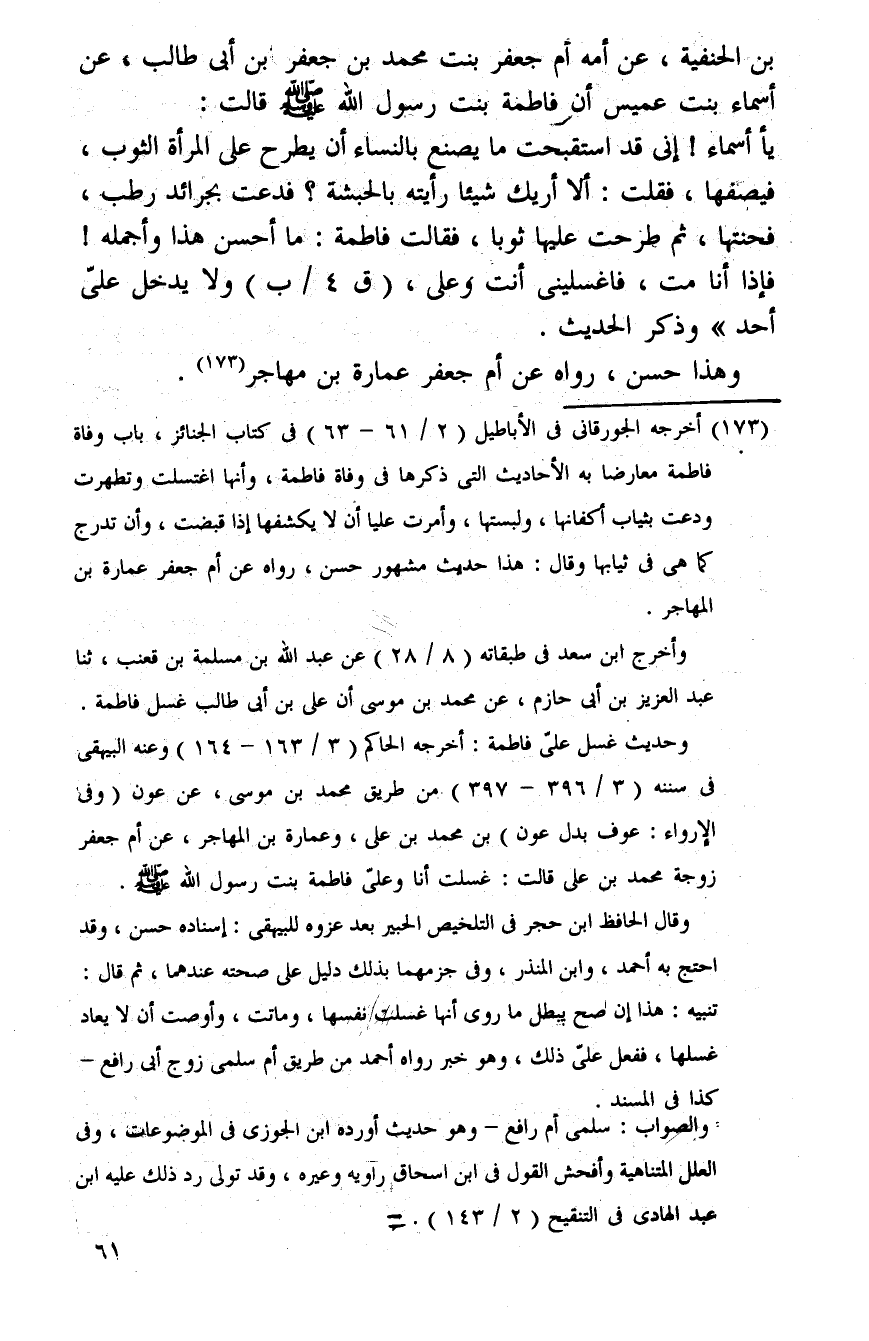 بن الحنفية ، عن أمه أم جعفر بنت محمد بن جعفر بن أبى طالب ، عن
أسماء بنت عميس أن فاطمة بنت رسول الله ﷺ قالت :
يأ أسماء ! إنى قد استقبحت ما يصنع بالنساء أن يطرح على المرأة الثوب ،
فيصفها ، فقلت : ألا أريك شيئا رأيته بالحبشة ؟ فدعت بجرائد رطب ،
فحنتها ، ثم طرحت عليها ثوبا ، فقالت فاطمة : ما أحسن هذا وأجمله !
فإذا أنا مت ، فاغسلينى أنت وعلى ، ( ق ٤ / ب ) ولا يدخل علىّ
أحد » وذكر الحديث .
وهذا حسن ، رواه عن أم جعفر عمارة بن مهاجر(١٧٣) .
(١٧٣) أخرجه الجورقانى فى الأباطيل ( ٢ / ٦١ – ٦٣ ) فى كتاب الجنائز ، باب وفاة
فاطمة معارضا به الأحاديث التى ذكرها فى وفاة فاطمة ، وأنها اغتسلت وتطهرت
ودعت بثياب أكفانها ، ولبستها ، وأمرت عليا أن لا يكشفها إذا قبضت ، وأن تدرج
كما هى فى ثيابها وقال : هذا حديث مشهور حسن ، رواه عن أم جعفر عمارة بن
المهاجر .
وأخرج ابن سعد فى طبقاته ( ٨ / ٢٨ ) عن عبد الله بن مسلمة بن قعنب ، ثنا
عبد العزيز بن أبى حازم ، عن محمد بن موسى أن على بن أبى طالب غسل فاطمة .
وحديث غسل علىّ فاطمة : أخرجه الحاكم ( ٣ / ١٦٣ – ١٦٤ ) وعنه البيهقى
فى سننه ( ٣ / ٣٩٦ – ٣٩٧ ) من طريق محمد بن موسى ، عن عون ( وفى
الإرواء : عوف بدل عون ) بن محمد بن على ، وعمارة بن المهاجر ، عن أم جعفر
زوجة محمد بن على قالت : غسلت أنا وعلىّ فاطمة بنت رسول الله ﷺ .
وقال الحافظ ابن حجر فى التلخيص الحبير بعد عزوه للبيهقى : إسناده حسن ، وقد
احتج به أحمد ، وابن المنذر ، وفى جزمهما بذلك دليل على صحته عندهما ، ثم قال :
تنبيه : هذا إن صح يبطل ما روى أنها غسلت نفسها ، وماتت ، وأوصت أن لا يعاد
غسلها ، ففعل علىّ ذلك ، وهو خبر رواه أحمد من طريق أم سلمى زوج أبى رافع –
كذا فى المسند .
والصواب : سلمى أم رافع – وهو حديث أورده ابن الجوزى فى الموضوعات ، وفى
العلل المتناهية وأفحش القول فى ابن اسحاق راويه وعيره ، وقد تولى رد ذلك عليه ابن
عبد الهادى فى التنقيح ( ٢ / ١٤٣ ) . =
٦١